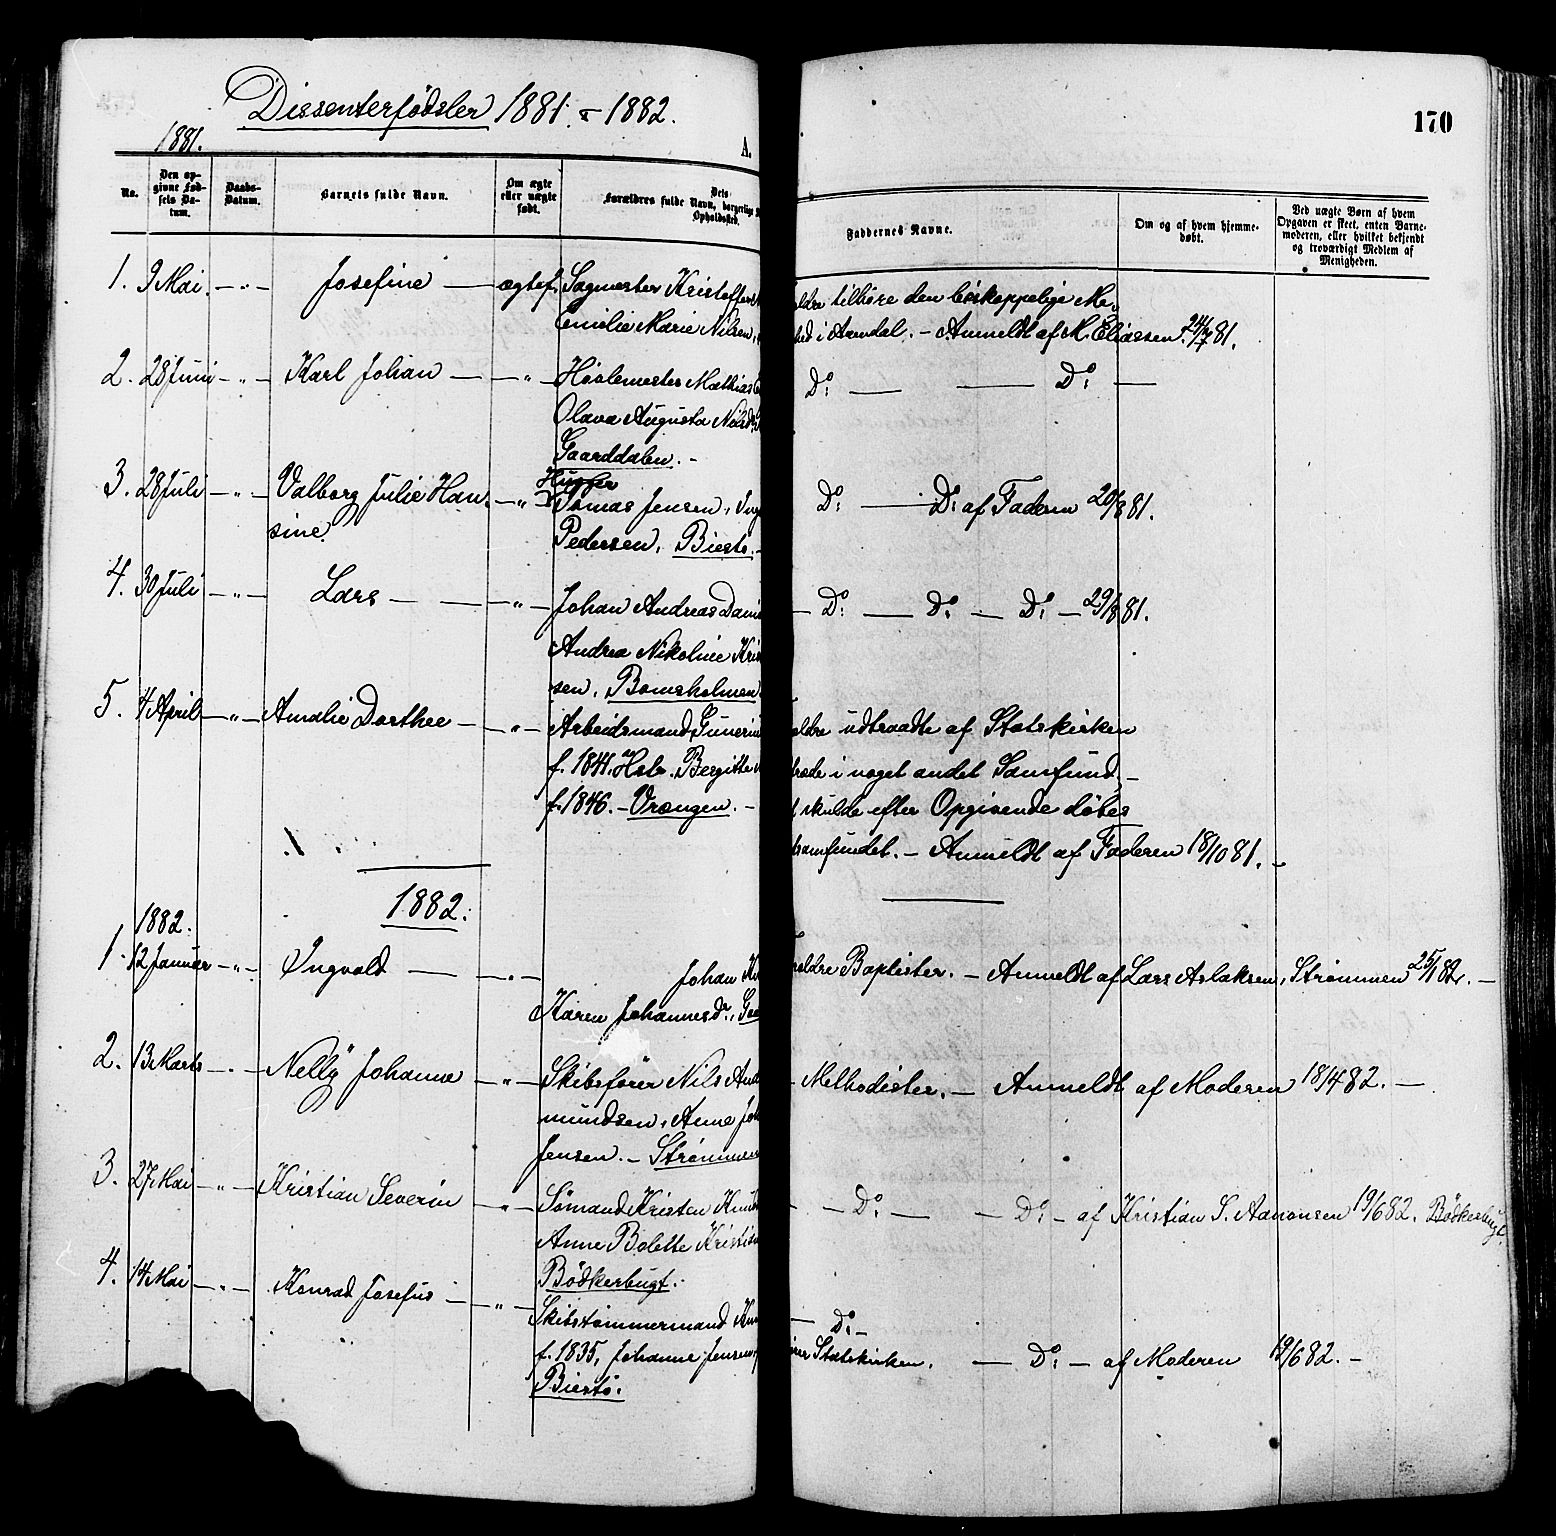 Dissenterfødsler 1881 & 1882.
1881.
A.
170
No.
Den op-
givne Fød-
sels Da-
tum.
Daabs-
Datum.
Barnets fulde Navn.
Om ægte
eller uægte
født.
Dets
Forældres fulde Navn, borgerlige
Opholdssted.
Faddernes Navne.
Om og af hvem hjemme-
døbt.
Ved uægte Børn af hvem
Opgaven er skeet, enten Barne-
moderen, eller hvilket bekjendt
og troværdigt Medlem af
Menigheden.
1. 9 Mai. — " — Josefine — ægtef. Sagmester Kristoffer
Emilie Marie Nilsen,
ldre tilhøre den biskoppelige Me-
hed i Arendal. — Anmeldt af M. Eliassen 24/7 81.
2. 28 Juni — " — Karl Johan — " — Høvlemester Mathias
Olava Augusta Nilsdr.
Gaarddalen. —
Do: — — Do: —
3. 28 Juli — " — Valborg Julie Han- — " — Hugger
sine Tomas Jensen,
Pedersen, Biestø. —
Do: — Do: af Faderen 20/8 81.
4. 30 Juli — " — Lars — — " — Johan Andreas Dani
Andrea Nikoline Kris
sen, Bomsholmen
— Do: — Do: — Do: — 29/8 81.
5. 4 April — " — Amalie Dorthee — " — Arbeidsmand Gunerius
f. 1841. Hstr. Bergitte
f. 1846. — Vrængen. —
ldre udtraadte af Statskirken
træde i noget andet Samfund. —
t skulde efter Opgivende døbes
samfundet. — Anmeldt af Faderen 18/10 81. —
1882.
1882.
1. 12 Januar — " — Ingvald — " — Johan K
Karen Johannesdr.,
ldre Baptister. — Anmeldt af Lars Aslaksen, Strømmen 25/1 82. —
2. 13 Marts — " — Nelly Johanne — " — Skibsfører Nils And
mundsen, Anne Joh
Jensen. — Strømmen
— Methodister. — Anmeldt af Moderen 18/4 82. —
3. 27 Mai — " — Kristian Severin — " — Sømand Kristen Knud
Anne Bolette Kristian
Bødkerbugt.
— Do: — — Do: — af Kristian S. Aanonsen 19/6 82. Bødkerbugt.
4. 14 Mai — " — Konrad Josefus — " — Skibstømmermand Knu
f. 1835, Johanne Jensen,
Biestø.
— Do: —
Statskirken. — Do: — af Moderen 19/6 82. —